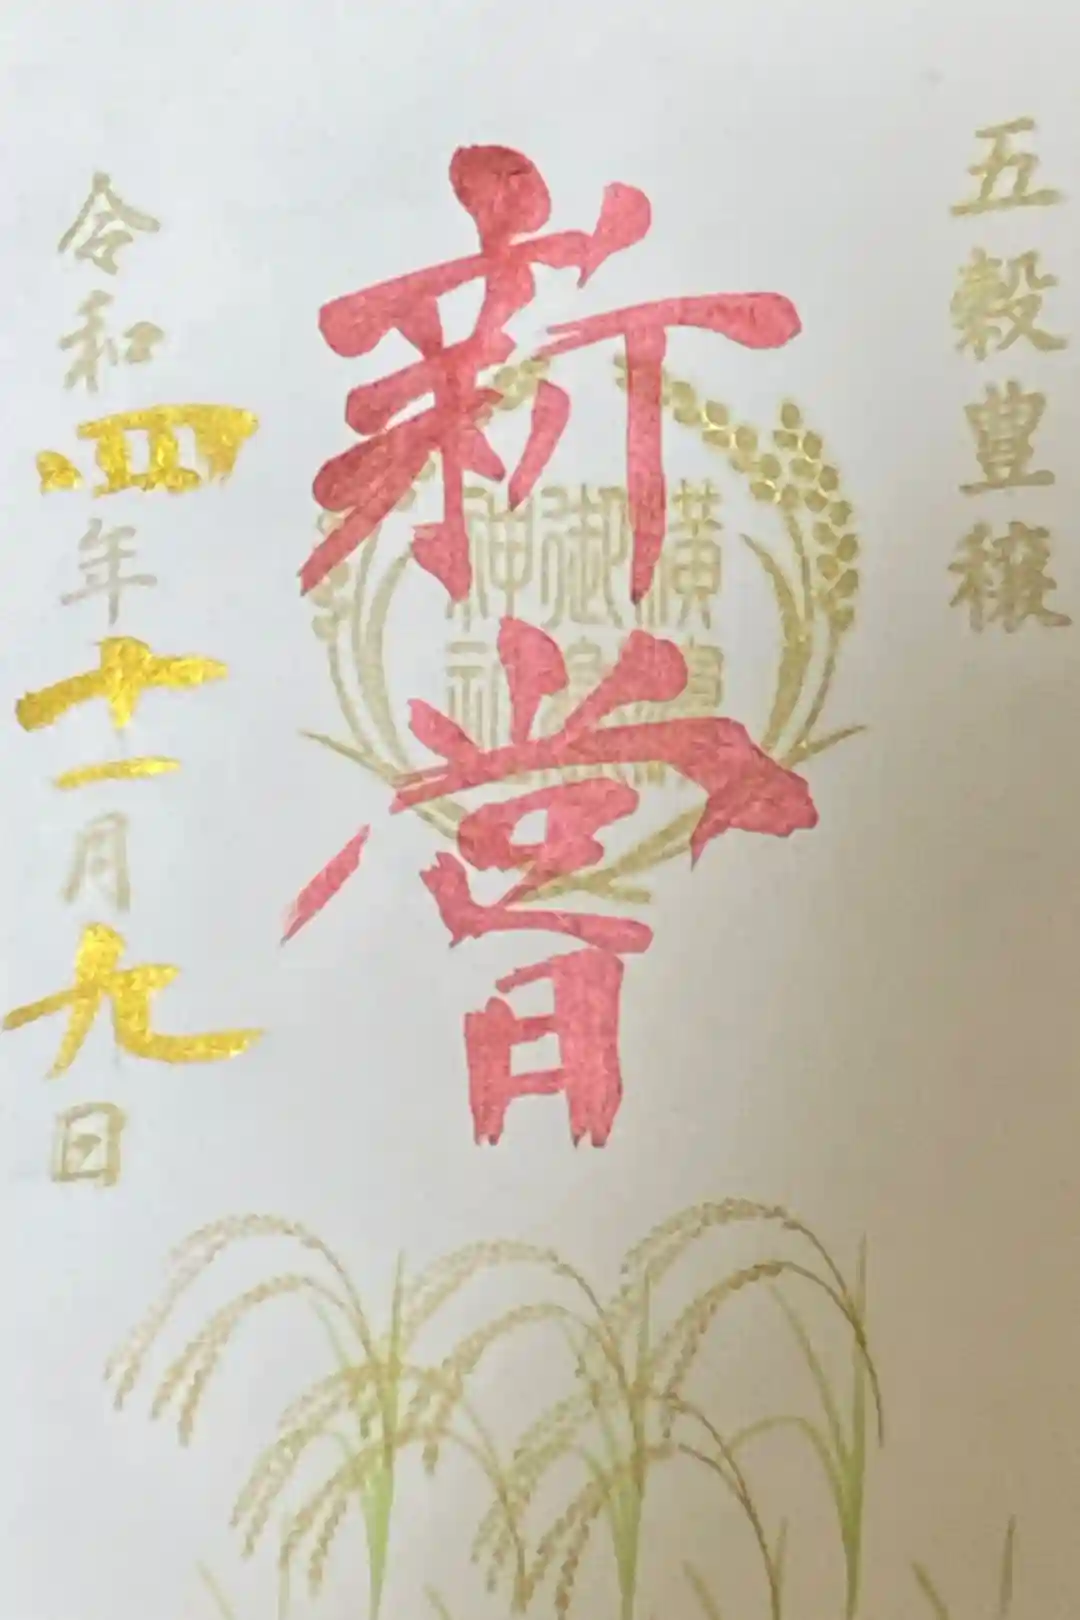 五穀豊穣
新嘗
横
御
神社
令和四年十一月九日